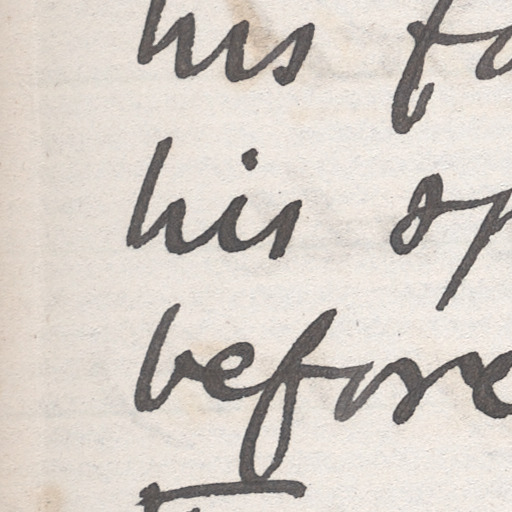 his fa
his op
before